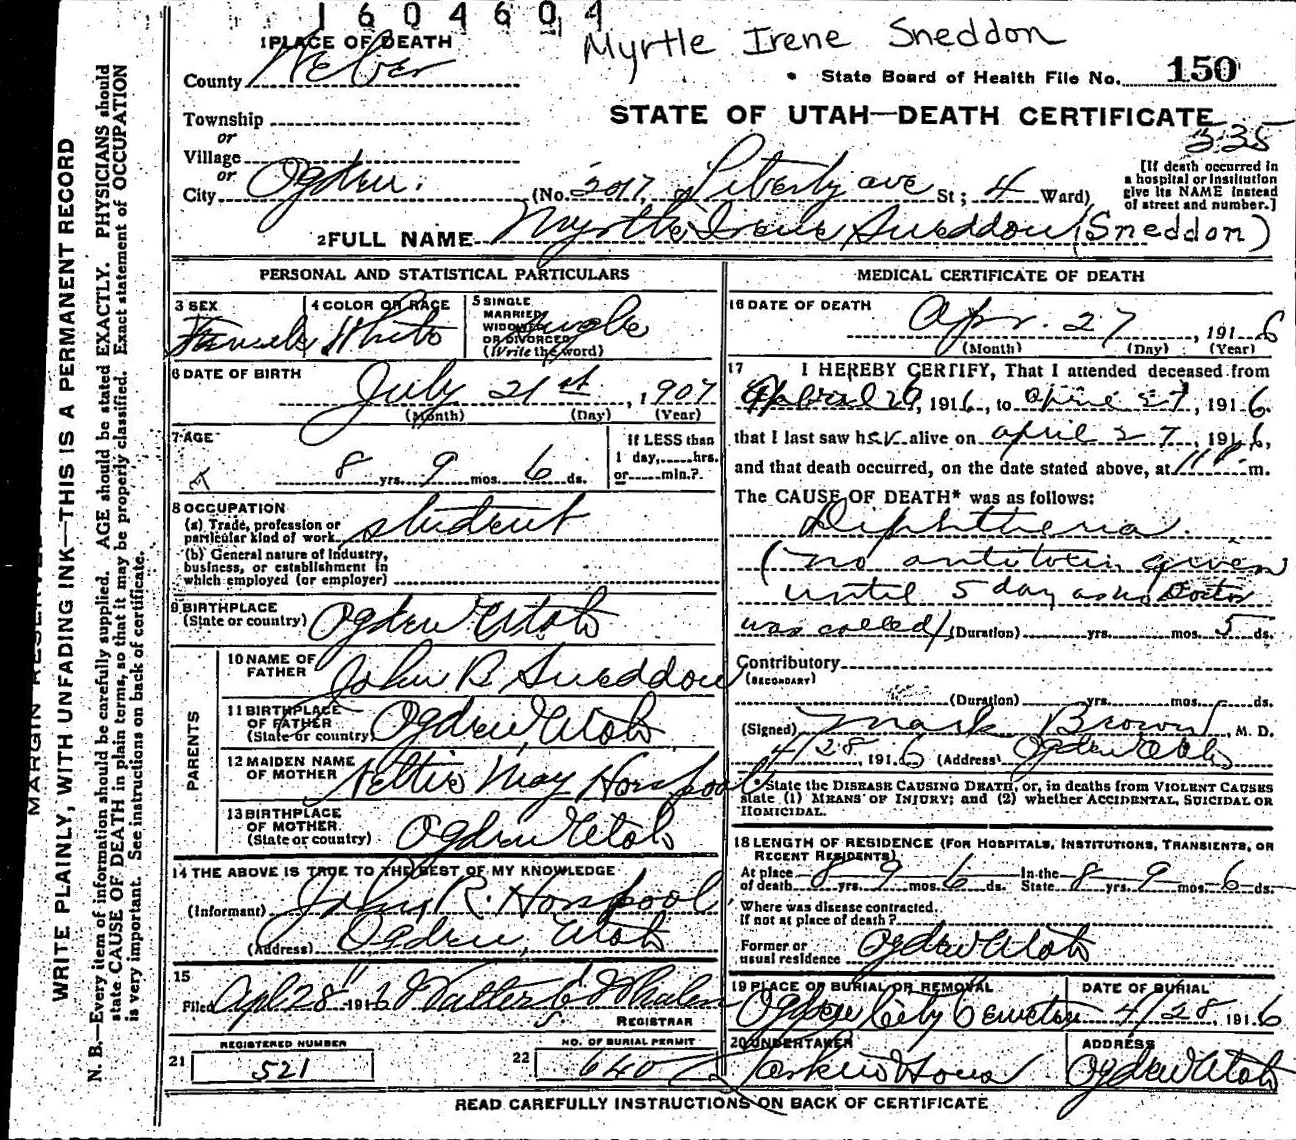 1604604
Myrtle Irene Sneddon
1 PLACE OF DEATH
County Weber
State Board of Health File No. 150
STATE OF UTAH—DEATH CERTIFICATE
335
Township
or
Village
or
City Ogden. (No. 2017, Liberty ave St; 4 Ward)
[If death occurred in
a hospital or institution
give its NAME instead
of street and number.]
2 FULL NAME Myrtle Irene Sneddon (Sneddon)
PERSONAL AND STATISTICAL PARTICULARS
3 SEX Female
4 COLOR OR RACE White
5 SINGLE
MARRIED
WIDOWED
OR DIVORCED
(Write the word)
Single
6 DATE OF BIRTH
July 21st, 1907
(Month) (Day) (Year)
7 AGE
8 yrs. 9 mos. 6 ds.
If LESS than
1 day, hrs.
or min.?
8 OCCUPATION
(a) Trade, profession or
particular kind of work student
(b) General nature of Industry,
business, or establishment in
which employed (or employer)
9 BIRTHPLACE
(State or country) Ogden Utah
PARENTS
10 NAME OF
FATHER John B Sneddon
11 BIRTHPLACE
OF FATHER
(State or country) Ogden Utah
12 MAIDEN NAME
OF MOTHER Nettie May Horspool
13 BIRTHPLACE
OF MOTHER
(State or country) Ogden Utah
14 THE ABOVE IS TRUE TO THE BEST OF MY KNOWLEDGE
(Informant) John R. Horspool
(Address) Ogden, Utah
15
Filed Apl 28 1916 Walter Whalen
REGISTRAR
REGISTERED NUMBER
21 521
NO. OF BURIAL PERMIT
22 640
MEDICAL CERTIFICATE OF DEATH
16 DATE OF DEATH
Apr. 27, 1916
(Month) (Day) (Year)
17 I HEREBY CERTIFY, That I attended deceased from
April 26, 1916, to April 27, 1916.
that I last saw her alive on april 27, 1916,
and that death occurred, on the date stated above, at m.
The CAUSE OF DEATH* was as follows:
Diphtheria.
(no antitoxin given
until 5 day as no Doctor
was called) (Duration) yrs. mos. 5 ds.
Contributory
(SECONDARY)
(Duration) yrs. mos. ds.
(Signed) Mark Brown, M. D.
4/28, 1916 (Address) Ogden Utah
*State the DISEASE CAUSING DEATH, or, in deaths from VIOLENT CAUSES
state (1) MEANS OF INJURY; and (2) whether ACCIDENTAL, SUICIDAL OR
HOMICIDAL.
18 LENGTH OF RESIDENCE (FOR HOSPITALS, INSTITUTIONS, TRANSIENTS, OR
RECENT RESIDENTS)
At place
of death 8 yrs. 9 mos. 6 ds. In the
State 8 yrs. 9 mos. 6 ds.
Where was disease contracted.
if not at place of death?
Former or
usual residence Ogden Utah
19 PLACE OF BURIAL OR REMOVAL
Ogden City Cemetery
DATE OF BURIAL
4/28, 1916
20 UNDERTAKER
ADDRESS
Ogden Utah
READ CAREFULLY INSTRUCTIONS ON BACK OF CERTIFICATE
MARGIN RESERVED
WRITE PLAINLY, WITH UNFADING INK—THIS IS A PERMANENT RECORD
N. B.—Every item of information should be carefully supplied. AGE should be stated EXACTLY. PHYSICIANS should
state CAUSE OF DEATH in plain terms, so that it may be properly classified. Exact statement of OCCUPATION
is very important. See instructions on back of certificate.